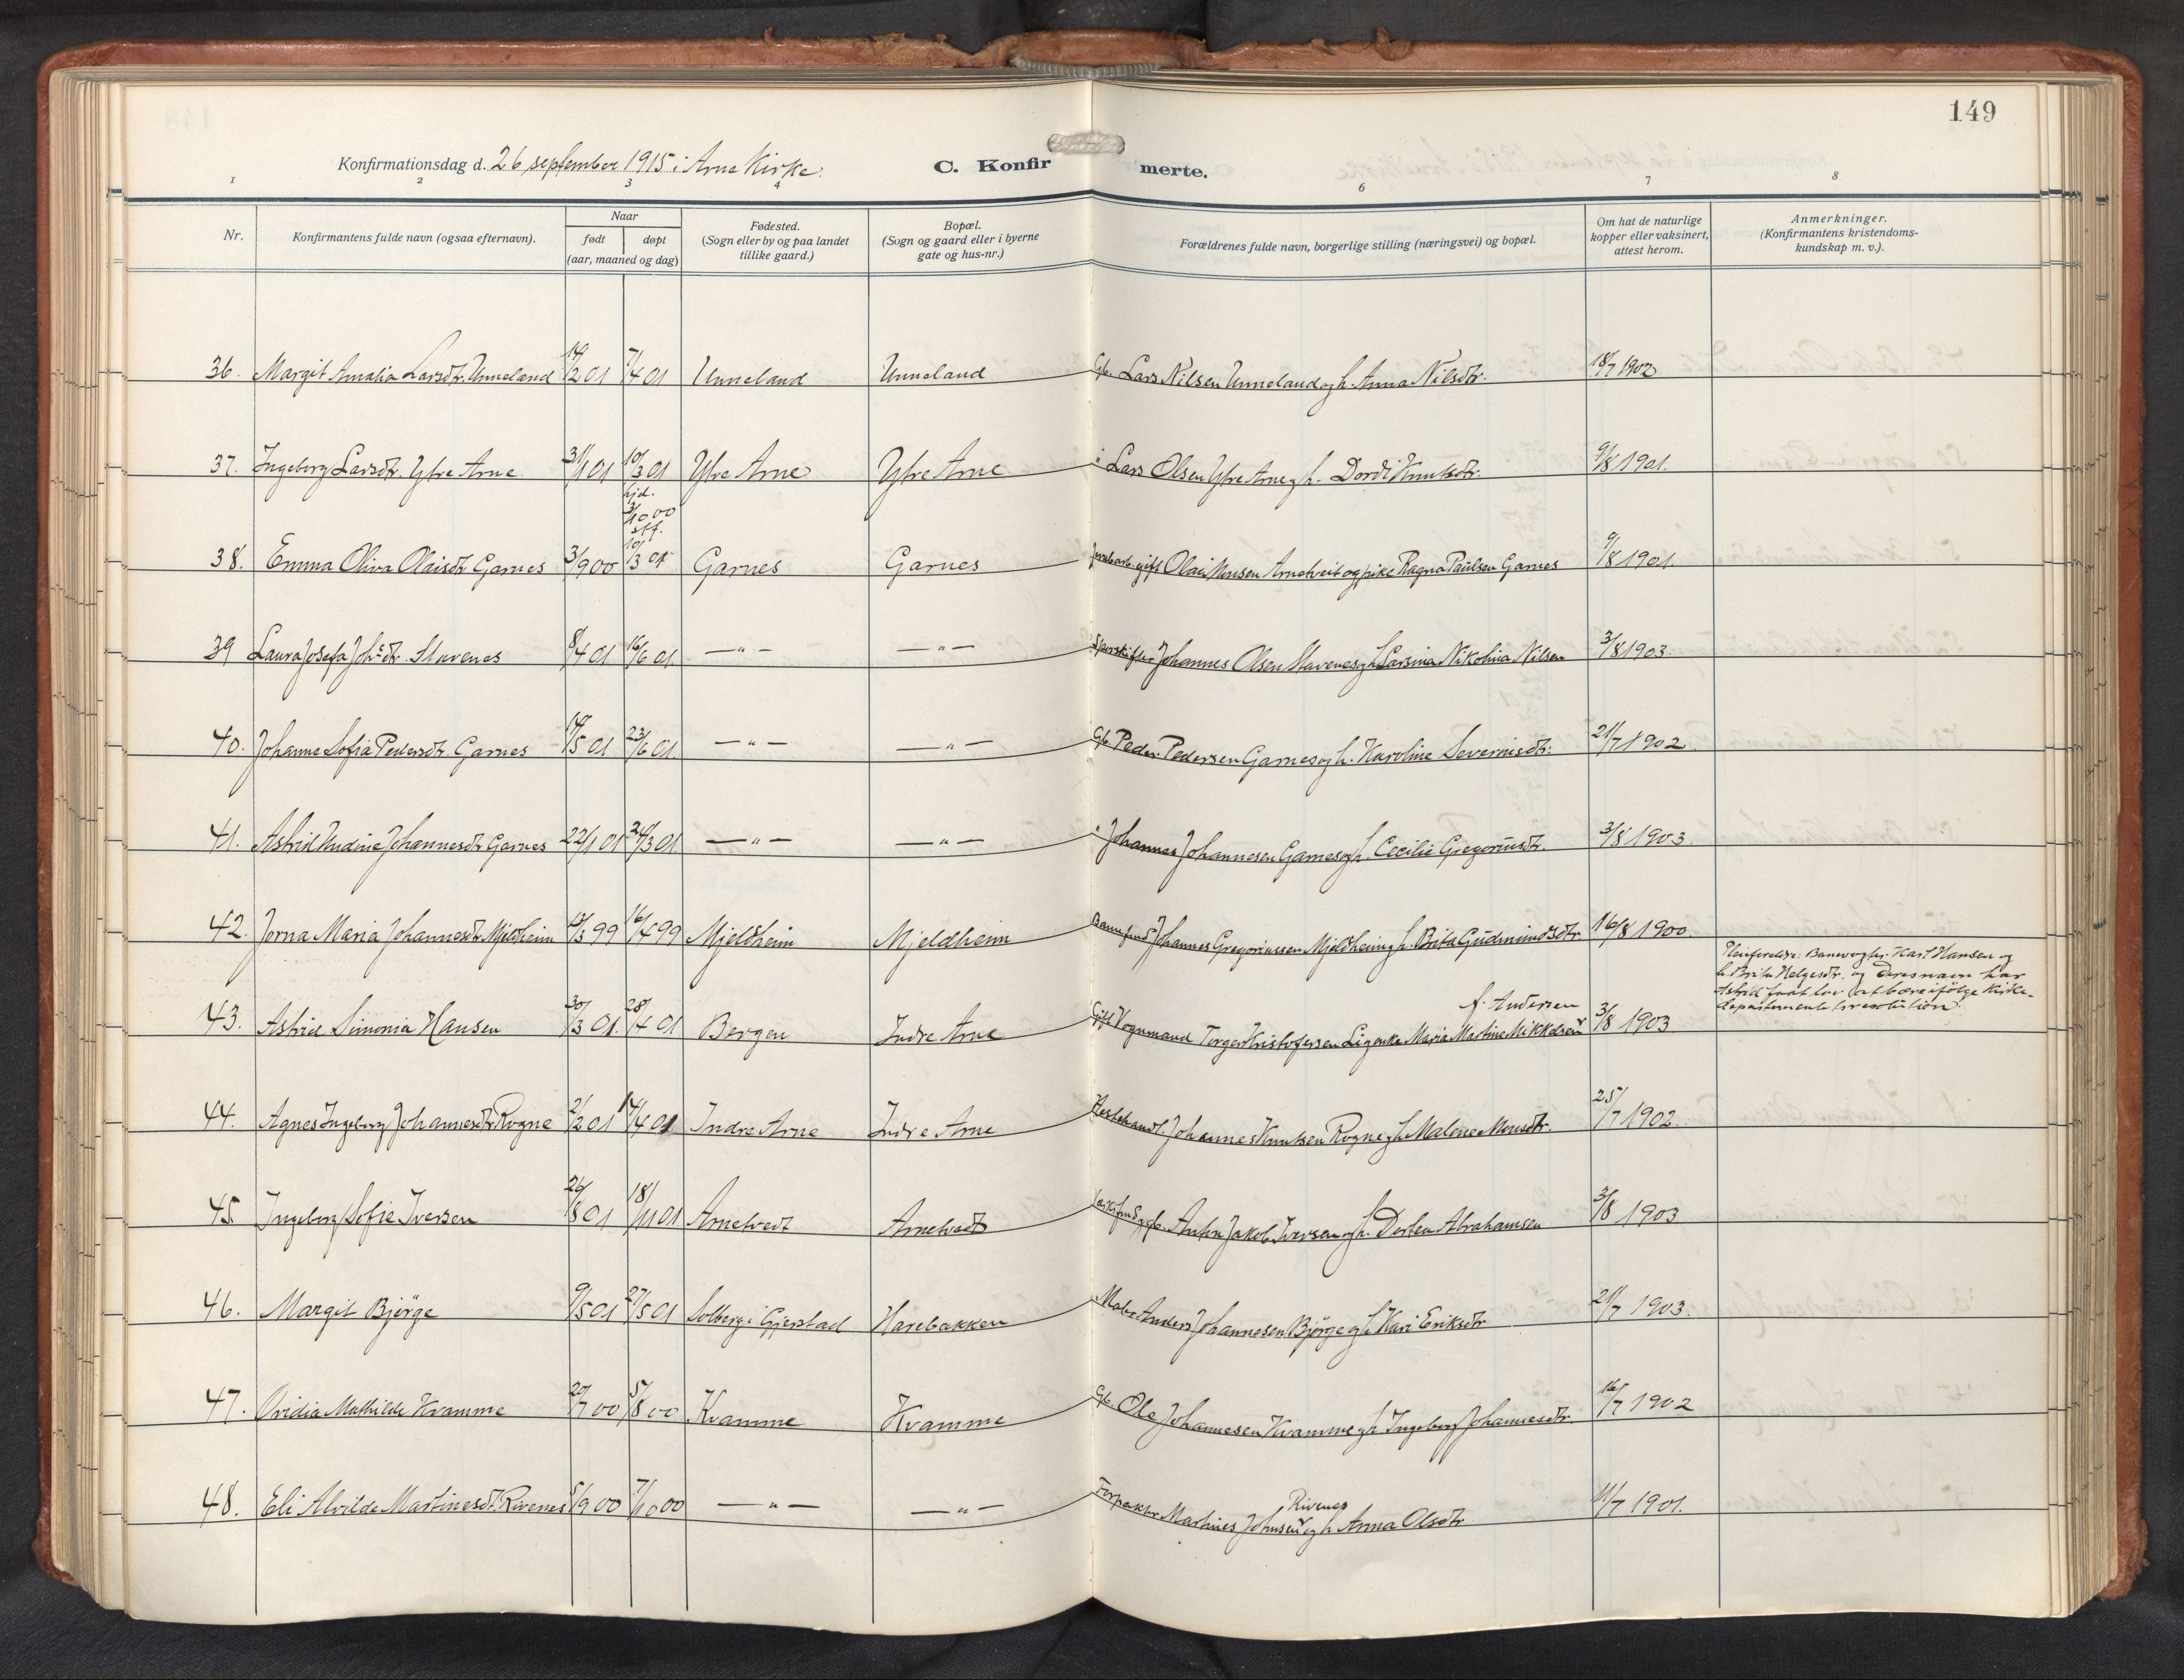 149
Konfirmationsdag d. 26 september 1915 i Arne Kirke.
C. Konfirmerte.
1 2 3 4 6 7 8
Nr.
Konfirmantens fulde navn (ogsaa efternavn).
Naar
født døpt
(aar, maaned og dag)
Fødested.
(Sogn eller by og paa landet
tillike gaard.)
Bopæl.
(Sogn og gaard eller i byerne
gate og hus-nr.)
Forældrenes fulde navn, borgerlige stilling (næringsvei) og bopæl.
Om hat de naturlige
kopper eller vaksinert,
attest herom.
Anmerkninger.
(Konfirmantens kristendoms-
kundskap m. v.).
36. Margit Amalia Larsdtr. Unneland 14/2 01 7/4 01 Unneland Unneland Gb. Lars Nilsen Unneland og h. Anna Nilsdtr. 18/7 1902
37. Ingeborg Larsdtr. Ytre Arne 31/1 01 10/3 01 Ytre Arne Ytre Arne " Lars Olsen Ytre Arne og h. Dordi Knutsdtr. 9/8 1901.
hjd.
3/10 00
stf.
38. Emma Oliva Olaisdtr Garnes 3/9 00 10/3 01 Garnes Garnes gift Olai Monsen Arnetveit og pike Ragna Paulsen Garnes 9/8 1901.
39 Laura Josefa Johs.dtr. Stavenes 8/4 01 16/6 01. — " — — " — Sporskifter Johannes Olsen Stavenes og h. Larsina Nikolina Nilsen 3/8 1903.
40. Johanne Sofia Pedersdtr. Garnes 14/5 01 23/6 01. — " — — " — Gb. Peder Pedersen Garnes og h. Karoline Severinsdtr. 21/7 1902.
41. Astrid Nudine Johannesdtr Garnes 22/1 01 24/3 01. — " — — " — " Johannes Johannesen Garnes og h. Cecilie Gregoriusdtr. 3/8 1903.
42. Jorna Maria Johannesdtr. Mjeldheim 13/3 99 16/4 99 Mjeldheim Mjeldheim Johannes Gregoriussen Mjeldheim og h. Brita Gudmundsdtr. 16/8 1900.
Pleieforeldre: Banevogter Karl Hansen og
h. Brita Helgesdtr. og deres navn har
Astrid faat lov at bære ifölge Kirke-
departementets resolution.
f. Andersen
43. Astrid Simonia Hansen 30/3 01. 28/4 01 Bergen Indre Arne Gift Vognmand Torger Kristofersen og enke Maria Martine Mikkelsen 3/8 1903
44. Agnes Ingeborg Johannesdtr Rogne 2/2 01 14/4 01. Indre Arne Indre Arne Johannes Knutsen Rogne og h. Malene Monsdtr. 25/7 1902.
45. Ingeborg Sofie Iversen 26/8 01 18/11 01 Arnetvedt Arnetvedt Anton Jakob Iversen og h. Dorten Abrahamsen 3/8 1903
46. Margit Bjørge 9/5 01 27/5 01 Solberg i Gjerstad Harebakken Maler Anders Johannesen Bjørge og h. Kari Eriksdtr 21/7 1903.
47. Ovidia Mathilde Kvamme 20/7 00 5/8 00 Kvamme Kvamme Gb. Ole Johannesen Kvamme og h. Ingeborg Johannesdtr. 16/7 1902
Rivenes
48. Eli Alvilde Martinesdt. Rivenes 5/9 00 7/10 00 — " — — " — Forpakter Martines Johnsen og h. Anna Olsdtr 11/7 1901.